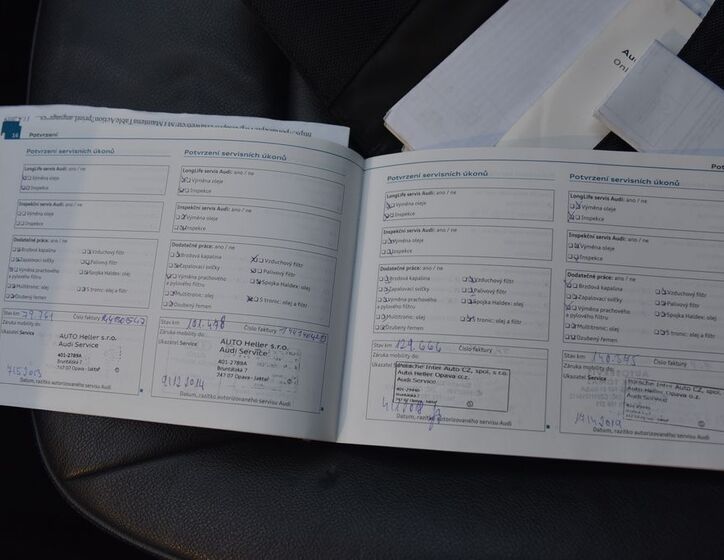 Au
Onl
14
Potvrzení
Potvrzení servisních úkonů
LongLife servis Audi: ano / ne
Výměna oleje
Inspekce
Inspekční servis Audi: ano / ne
Výměna oleje
Inspekce
Dodatečné práce: ano / ne
Brzdová kapalina
Vzduchový filtr
Zapalovací svíčky
Palivový filtr
Výměna prachového a pylového filtru
Spojka Haldex: olej
Multitronic: olej
S tronic: olej a filtr
Ozubený řemen
Stav km 79.761
Číslo faktury
Záruka mobility do:
Ukazatel Service
AUTO Heller s.r.o.
Audi Service
401-2789A
Bruntálská 7
747 07 Opava - Jaktař
7.5.2013
Datum, razítko autorizovaného servisu Audi
Potvrzení servisních úkonů
LongLife servis Audi: ano / ne
Výměna oleje
Inspekce
Inspekční servis Audi: ano / ne
Výměna oleje
Inspekce
Dodatečné práce: ano / ne
Brzdová kapalina
Vzduchový filtr
Zapalovací svíčky
Palivový filtr
Výměna prachového
a pylového filtru
Spojka Haldex: olej
Multitronic: olej
S tronic: olej a filtr
Ozubený řemen
Stav km 101.478
Číslo faktury
Záruka mobility do:
Ukazatel Service
AUTO Heller s.r.o.
Audi Service
401-2789A
Bruntálská 7
747 07 Opava - Jaktař
9.12.2014
Datum, razítko autorizovaného servisu Audi
Potvrzení servisních úkonů
LongLife servis Audi: ano / ne
Výměna oleje
Inspekce
Inspekční servis Audi: ano / ne
Výměna oleje
Inspekce
Dodatečné práce: ano / ne
Brzdová kapalina
Vzduchový filtr
Zapalovací svíčky
Palivový filtr
Výměna prachového
a pylového filtru
Spojka Haldex: olej
Multitronic: olej
S tronic: olej a filtr
Ozubený řemen
Stav km 129.666
Číslo faktury
Záruka mobility do:
Ukazatel
Porsche Inter Auto CZ, spol. s r.o.
Auto Heller Opava o.z.
Audi Service
747 07 Opava - Jaktař
Datum, razítko autorizovaného servisu Audi
Pot
Potvrzení servisních úkonů
LongLife servis Audi: ano / ne
Výměna oleje
Inspekce
Inspekční servis Audi: ano / ne
Výměna oleje
Inspekce
Dodatečné práce: ano / ne
Brzdová kapalina
Vzduchový filtr
Zapalovací svíčky
Palivový filtr
Výměna prachového
a pylového filtru
Spojka Haldex: olej
Multitronic: olej
S tronic: olej a filtr
Ozubený řemen
Stav km
Číslo faktury
Záruka mobility do:
Ukazatel Service
Porsche Inter Auto CZ, spol. s r.o.
Auto Heller Opava o.z.
Audi Service
Datum, razítko autorizovaného servisu Audi